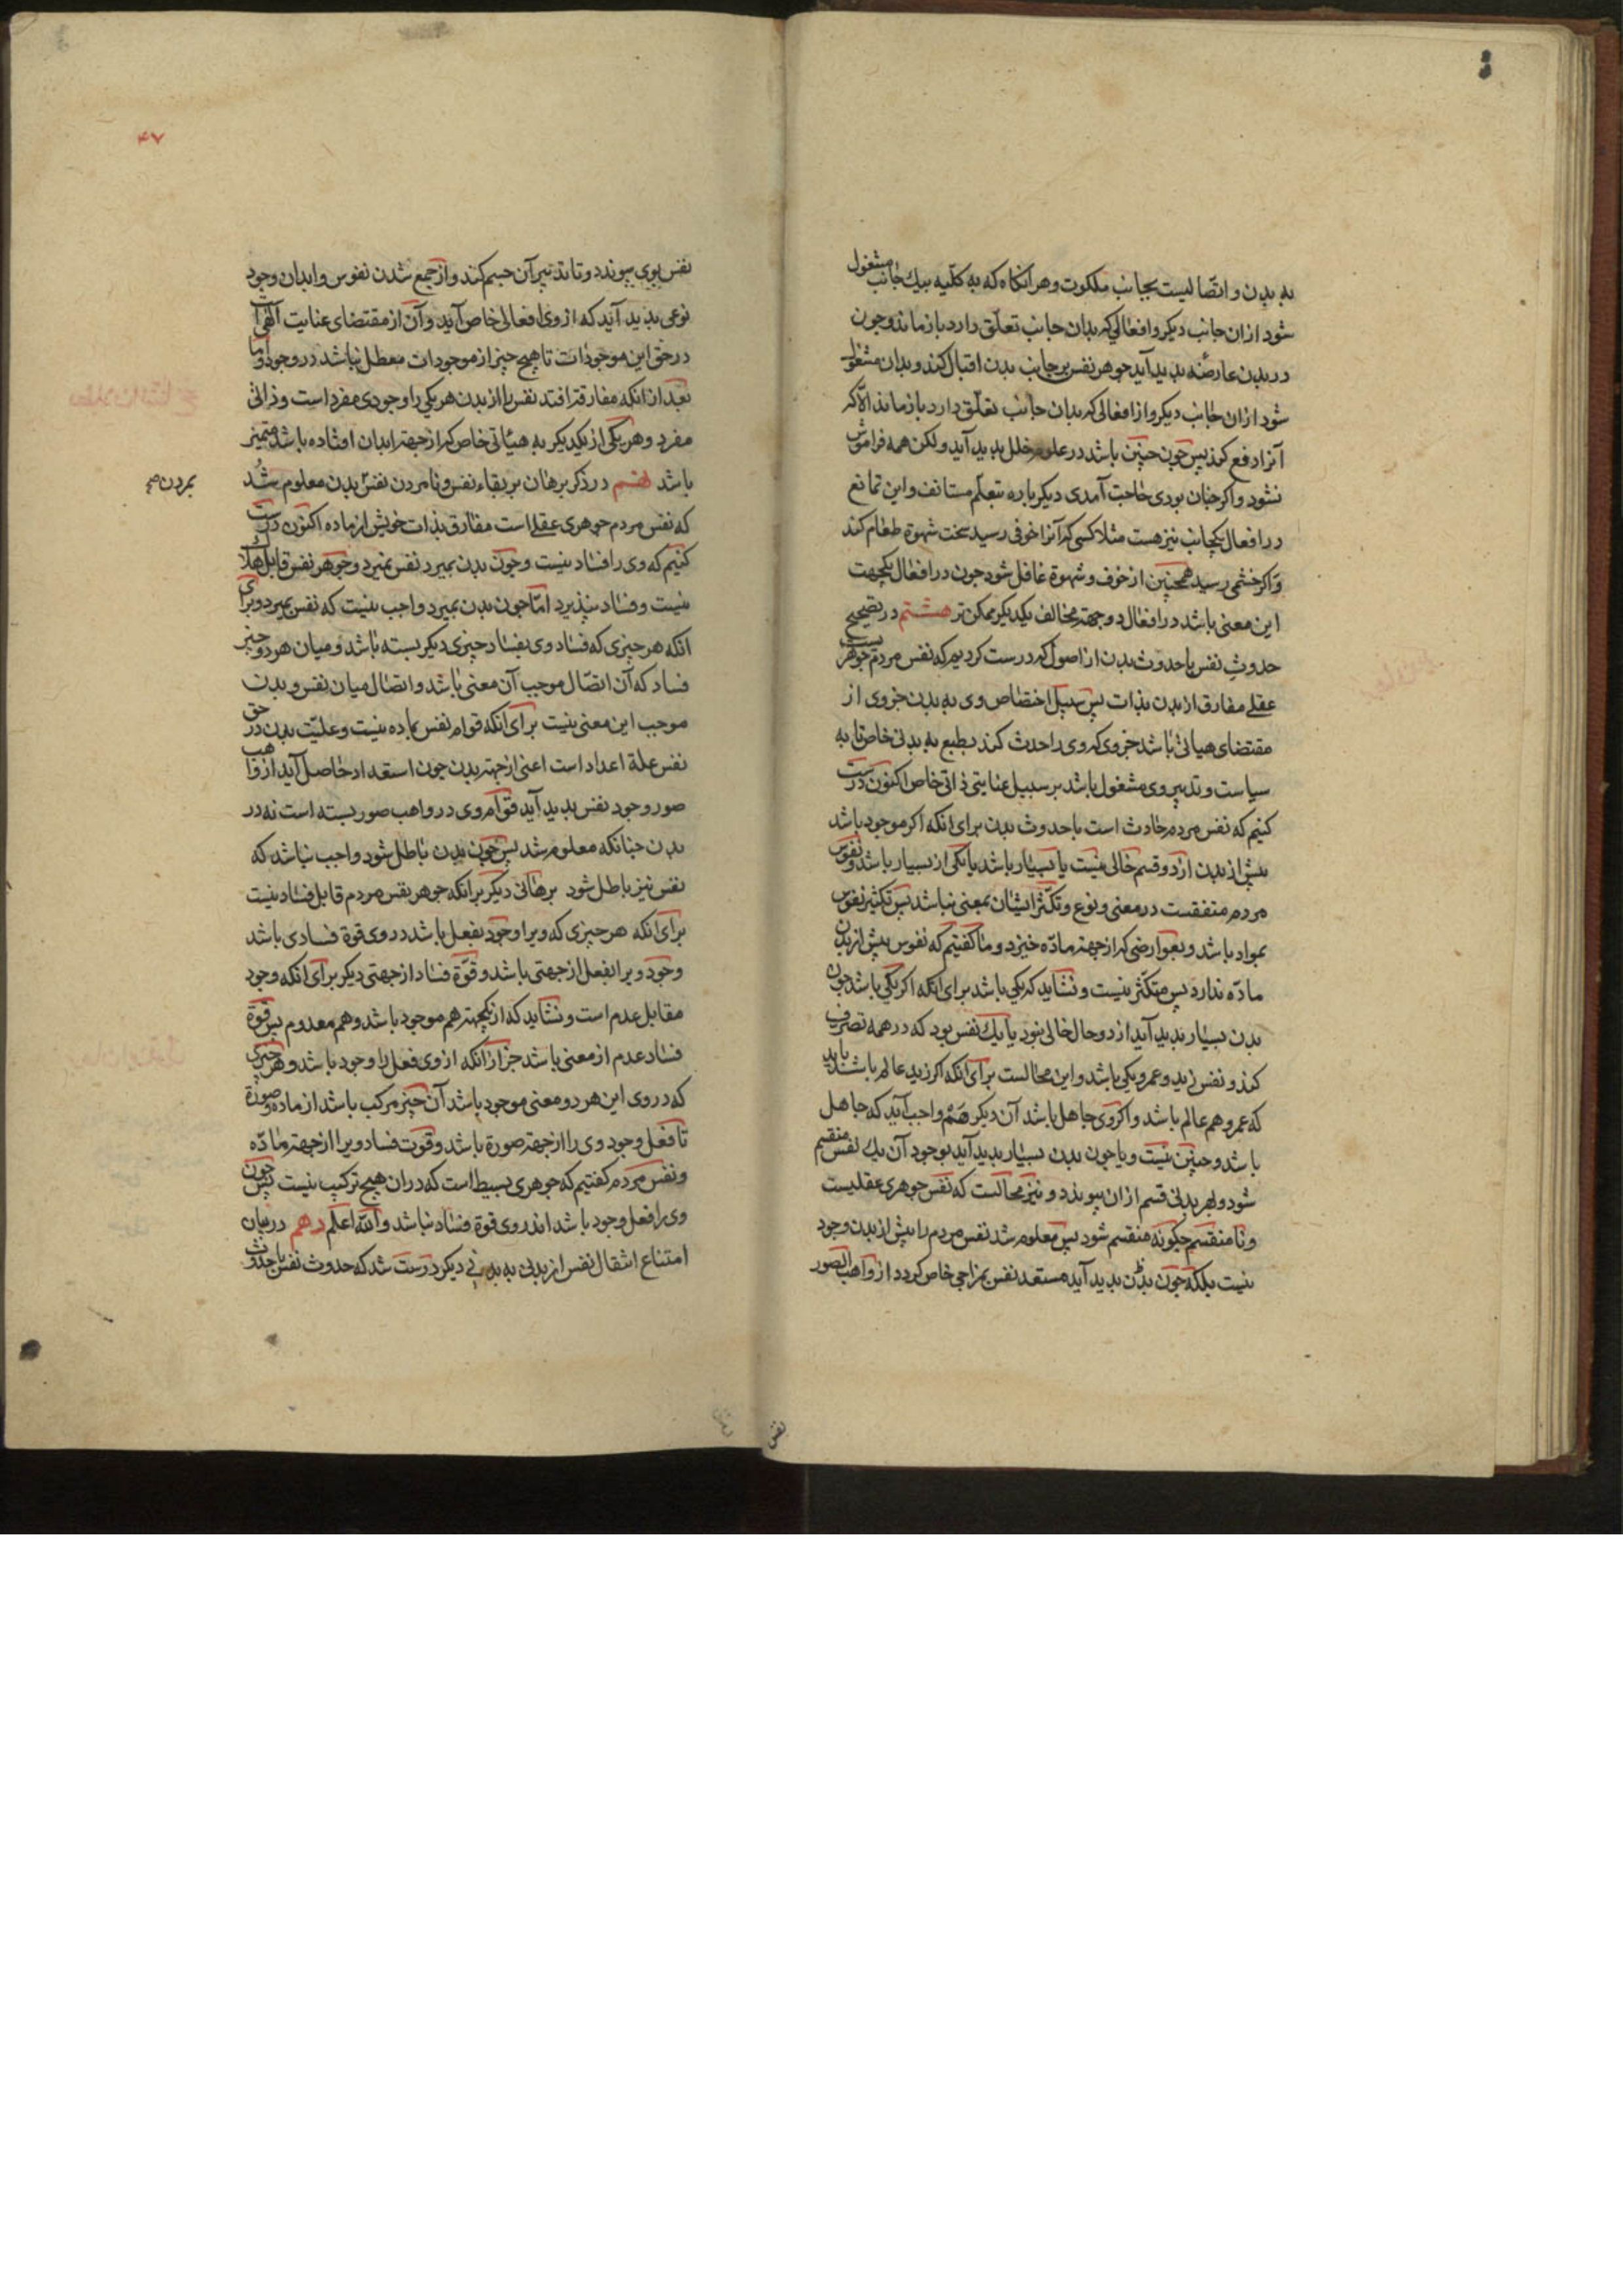 به بدن و اتصالیست بجانب ملکوت و هر آنکاه که به کلیه بیک جانب مشغول
شود از ان جانب دیکر و افعالی که بدان جانب تعلق دارد باز ماند و جون
در بدن عارضه بدید آید جوهر نفس بر جانب بدن اقبال کند و بدان مشغول
شود از ان جانب دیکر و از افعالی که بدان جانب تعلق دارد باز ماند الا که
آنرا دفع کرد بس جون جنین باشد در علوم خلل بدید آید ولکن همه فراموش
نشود و اکر جنان بودی حاجت آمدی دیکر باره بتعلم مستانف و این تمانع
در افعال یکجانب نیز هست مثلا کسی که آنرا خوفی رسید سخت شهوة طعام کند
و اکر خشمی رسید همجنین از خوف و شهوة غافل شود جون در افعال یکجهت
این معنی باشد در افعال دو جهة مخالف یکدیکر ممکن تر هشتم در تصحیح
حدوث نفس با حدوث بدن از اصول که درست کردیم که نفس مردم جوهریست
عقلی مفارق از بدن بذات بس سبیل اختصاص وی به بدن جزوی از
مقتضای هیاتی باشد جزوی که وی را حدث کند بطبع به بدنی خاص تا به
سیاست و تدبیر وی مشغول باشد بر سبیل عنایتی ذاتی خاص اکنون درست
کنیم که نفس مردم حادث است با حدوث بدن برای آنکه اکر موجود باشد
بیش از بدن از دو قسم خالی نیست یا بسیار باشد یا یکی از بسیار باشد و نفوس
مردم متفقست در معنی و نوع و تکثر ایشان بمعنی نباشد بس تکثیر نفوس
بمواد باشد و بعوارضی که از جهة ماده خیزد و ما کفتیم که نفوس بیش از بدن
ماده ندارد بس متکثر نیست و نشاید که یکی باشد برای انکه اکر یکی باشد جون
بدن بسیار بدید آید از دو حال خالی نبود یا یک نفس بود که در همه تصرف
کند و نفس زید و عمرو یکی باشد و این محالست برای انکه اکر زید عالم باشد باید
که عمرو هم عالم باشد و اکر وی جاهل باشد آن دیکر هم واجب آید که جاهل
باشد و جنین نیست و یا جون بدن بسیار بدید آید بوجود آن یک نفس منقسم
شود و بهر بدنی قسم ازان بیوندد و نیز محالست که نفس جوهری عقلیست
و نا منقسم جکونه منقسم شود بس معلوم شد نفس مردم را بیش از بدن وجود
نیست بلکه جون بدن بدید آید مستعد نفس بمزاجی خاص کردد از واهب الصور
نفس
۴۷
نفس بوی بیوندد و تا تدبیر آن جسم کند و از جمع شدن نفوس و ابدان وجود
نوعی بدید آید که از وی افعالی خاص آید و آن از مقتضای عنایت الهی است
در حق این موجودات تا هیج جیز از موجودات معطل نباشد در وجود و اما
بعد از انکه مفارقة افتد نفس را از بدن هر یکی را وجودی مفرد است و ذاتی
مفرد و هر یکی از یکدیکر به هیأتی خاص که از جهة ابدان افتاده باشد متمیز
باشد نهم در ذکر برهان بر بقاء نفس و نامردن نفس بدن معلوم شد
بمردن صح
که نفس مردم جوهری عقلی است مفارق بذات خویش از ماده اکنون درست
کنیم که وی را فساد نیست و جون بدن بمیرد نفس نمیرد و جوهر نفس قابل هلاک
نیست و فساد نبذیرد اما جون بدن بمیرد واجب نیست که نفس بمیرد و برای
انکه هر جیزی که فساد وی بفساد جیزی دیکر بسته باشد و میان هر دو جیز
فساد که آن اتصال موجب آن معنی باشد و اتصال میان نفس و بدن
موجب این معنی نیست برای انکه قوام نفس بماده نیست و علیت بدن در حق
نفس علة اعداد است اعنی از جهة بدن جون استعداد حاصل آید از واهب
صور وجود نفس بدید آید قوام وی در واهب صور بسته است نه در
بدن جنانکه معلوم شد بس جون بدن باطل شود واجب نباشد که
نفس نیز باطل شود برهانی دیکر برانکه جوهر نفس مردم قابل فساد نیست
برای انکه هر جیزی که ویرا وجود بفعل باشد در وی قوة فسادی باشد
وجود ویرا بفعل از جهتی باشد و قوة فساد از جهتی دیکر برای انکه وجود
مقابل عدم است و نشاید که از یکجهة هم موجود باشد و هم معدوم بس قوة
فساد عدم از معنی باشد جز از انکه از وی فعل را وجود باشد و هر جیزی
که در وی این هر دو معنی موجود باشد آن جیز مرکب باشد از ماده و صورة
تا فعل وجود وی را از جهة صورة باشد و قوت فساد ویرا از جهة ماده
و نفس مردم کفتیم که جوهری بسیط است که در ان هیج ترکیب نیست بس جون
وی را فعل وجود باشد اندر وی قوة فساد نباشد والله اعلم دهم در بیان
امتناع انتقال نفس از بدنی به بدنی دیکر درست شد که حدوث نفس با حدوث